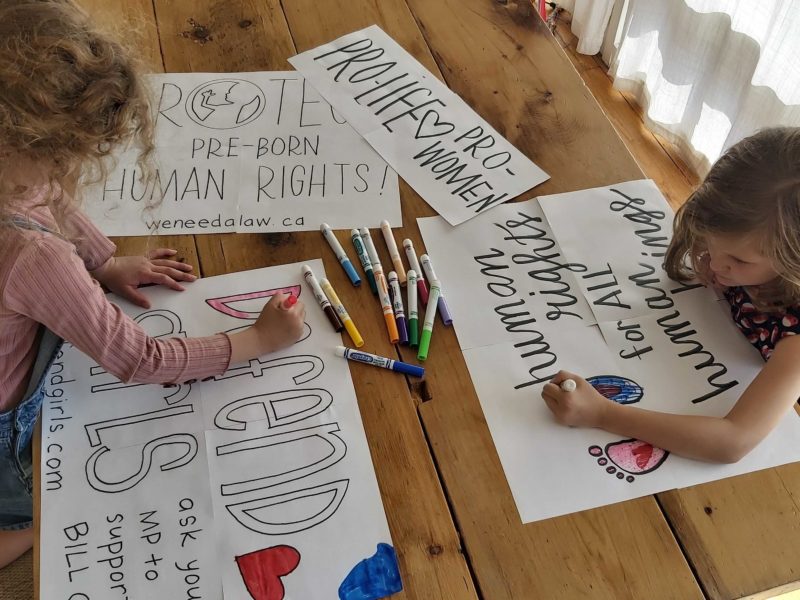 ROTEC
PRE-BORN
HUMAN RIGHTS!
weneedalaw.ca
PRO-LIFE ♡ PRO-
WOMEN
human
rights
for ALL
human
beings
Defend
GIRLS
ask you
MP to
support
BILL C
endgirls.com